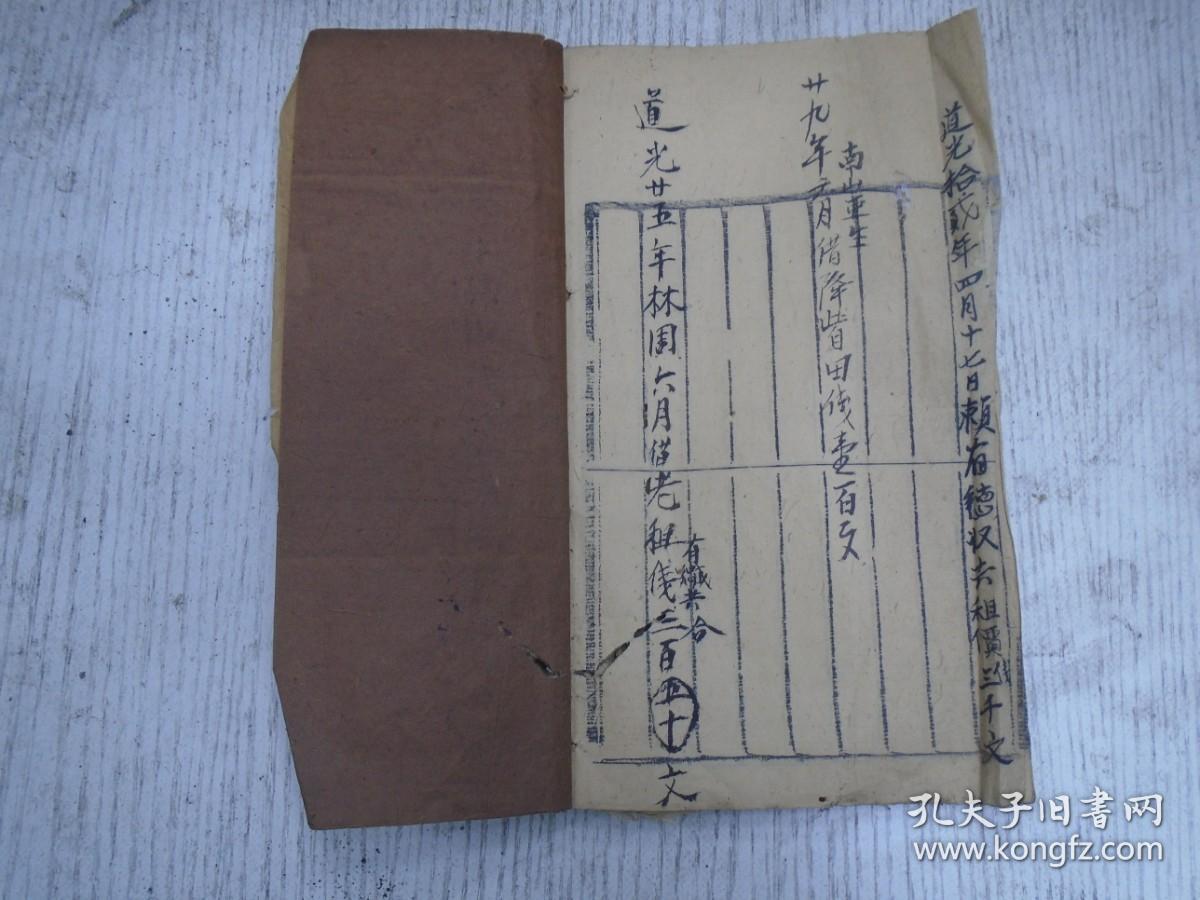 道光拾貳年四月十七日賴有德收去租價錢三千文
南山軍生
廿九年六月借降皆田伐壹百文
道光廿五年林園六月借老租伐三百五十文
有儀共合
孔夫子旧書网
www.kongfz.com